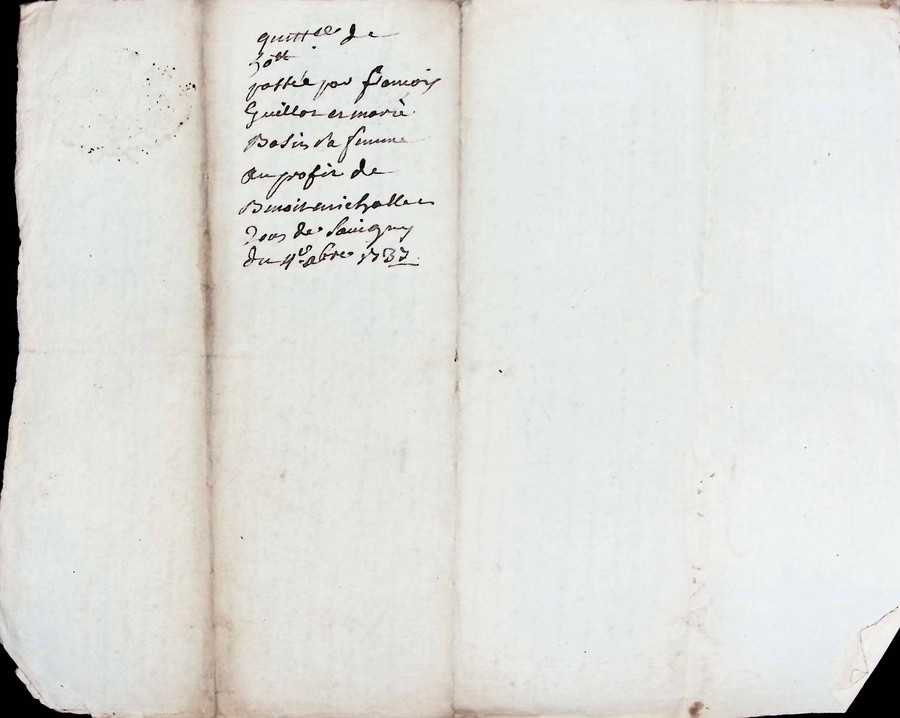 quittce de
30tt
passée par francois
Guillot et marie
Basin sa femme
au profit de
Benoit michallet
de Savigny
du 4e 1737